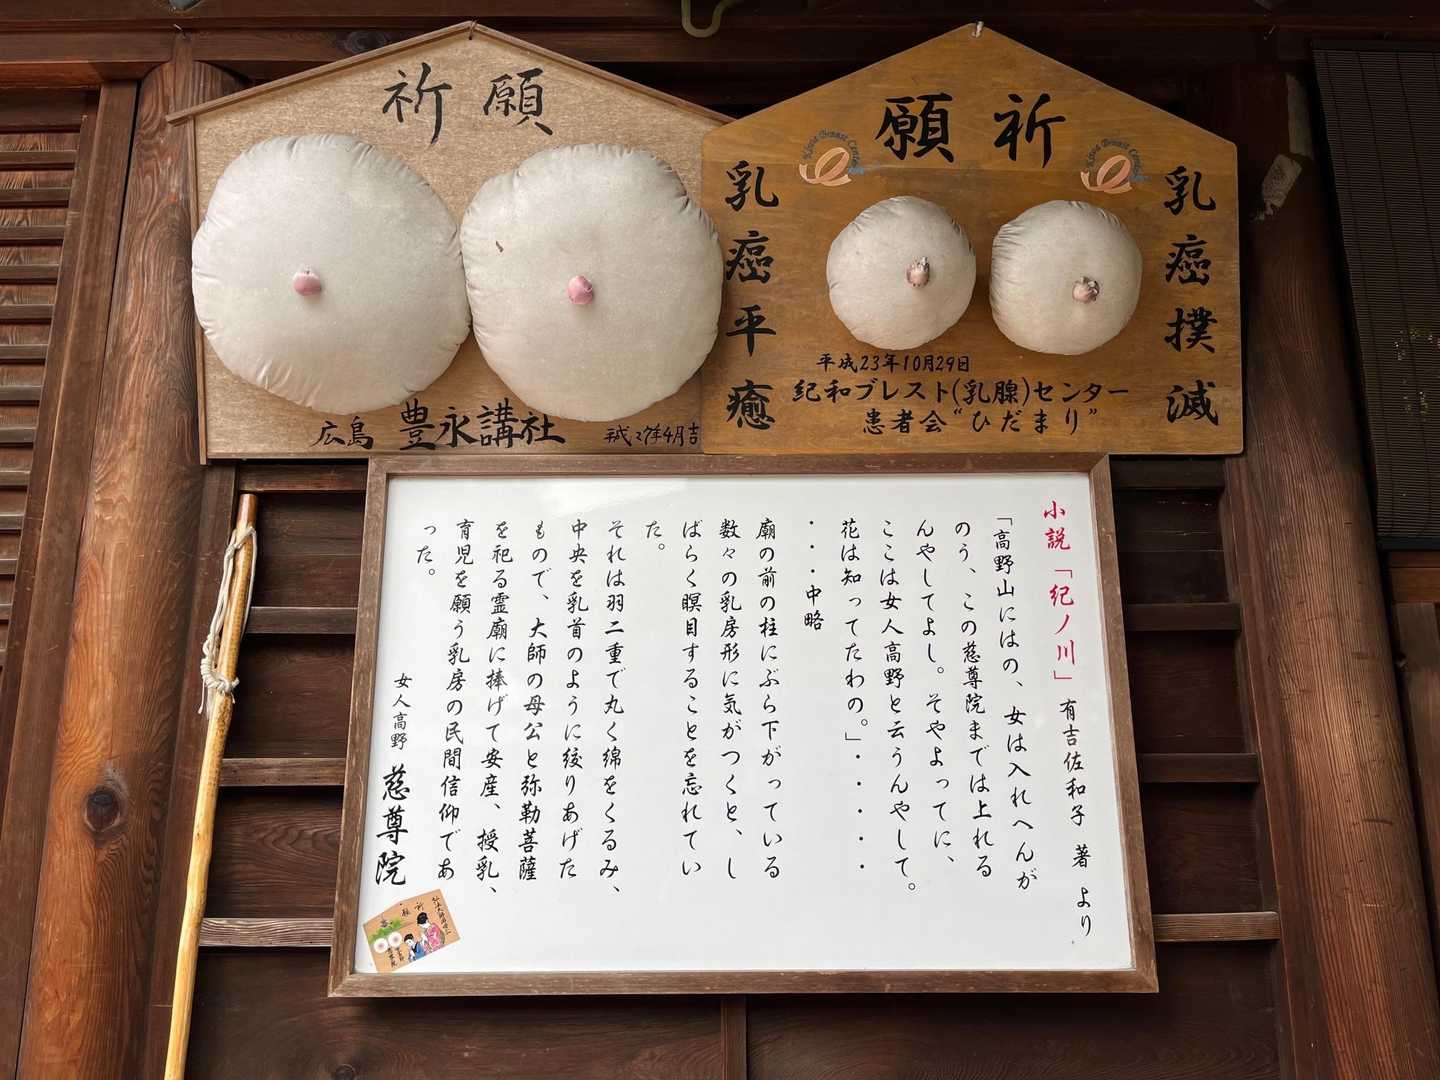 祈願
広島 豊永講社
平成27年4月吉
Kihoku Breast Center
願祈
乳癌撲滅
乳癌平癒
平成23年10月29日
紀和ブレスト(乳腺)センター
患者会“ひだまり”
小説「紀ノ川」 有吉佐和子 著 より
「高野山にはの、女は入れへんが
のう、この慈尊院までは上れる
んやしてよし。そやよってに、
ここは女人高野と云うんやして。
花は知ってたわの。」・・・・・
・・・中略
廟の前の柱にぶら下がっている
数々の乳房形に気がつくと、し
ばらく瞑目することを忘れてい
た。
それは羽二重で丸く綿をくるみ、
中央を乳首のように絞りあげた
もので、大師の母公と弥勒菩薩
を祀る霊廟に捧げて安産、授乳、
育児を願う乳房の民間信仰であ
った。
女人高野 慈尊院